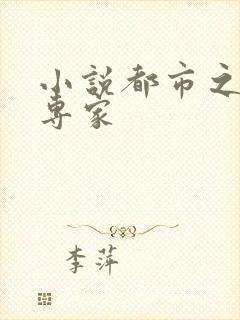 小說都市之
專家
李萍